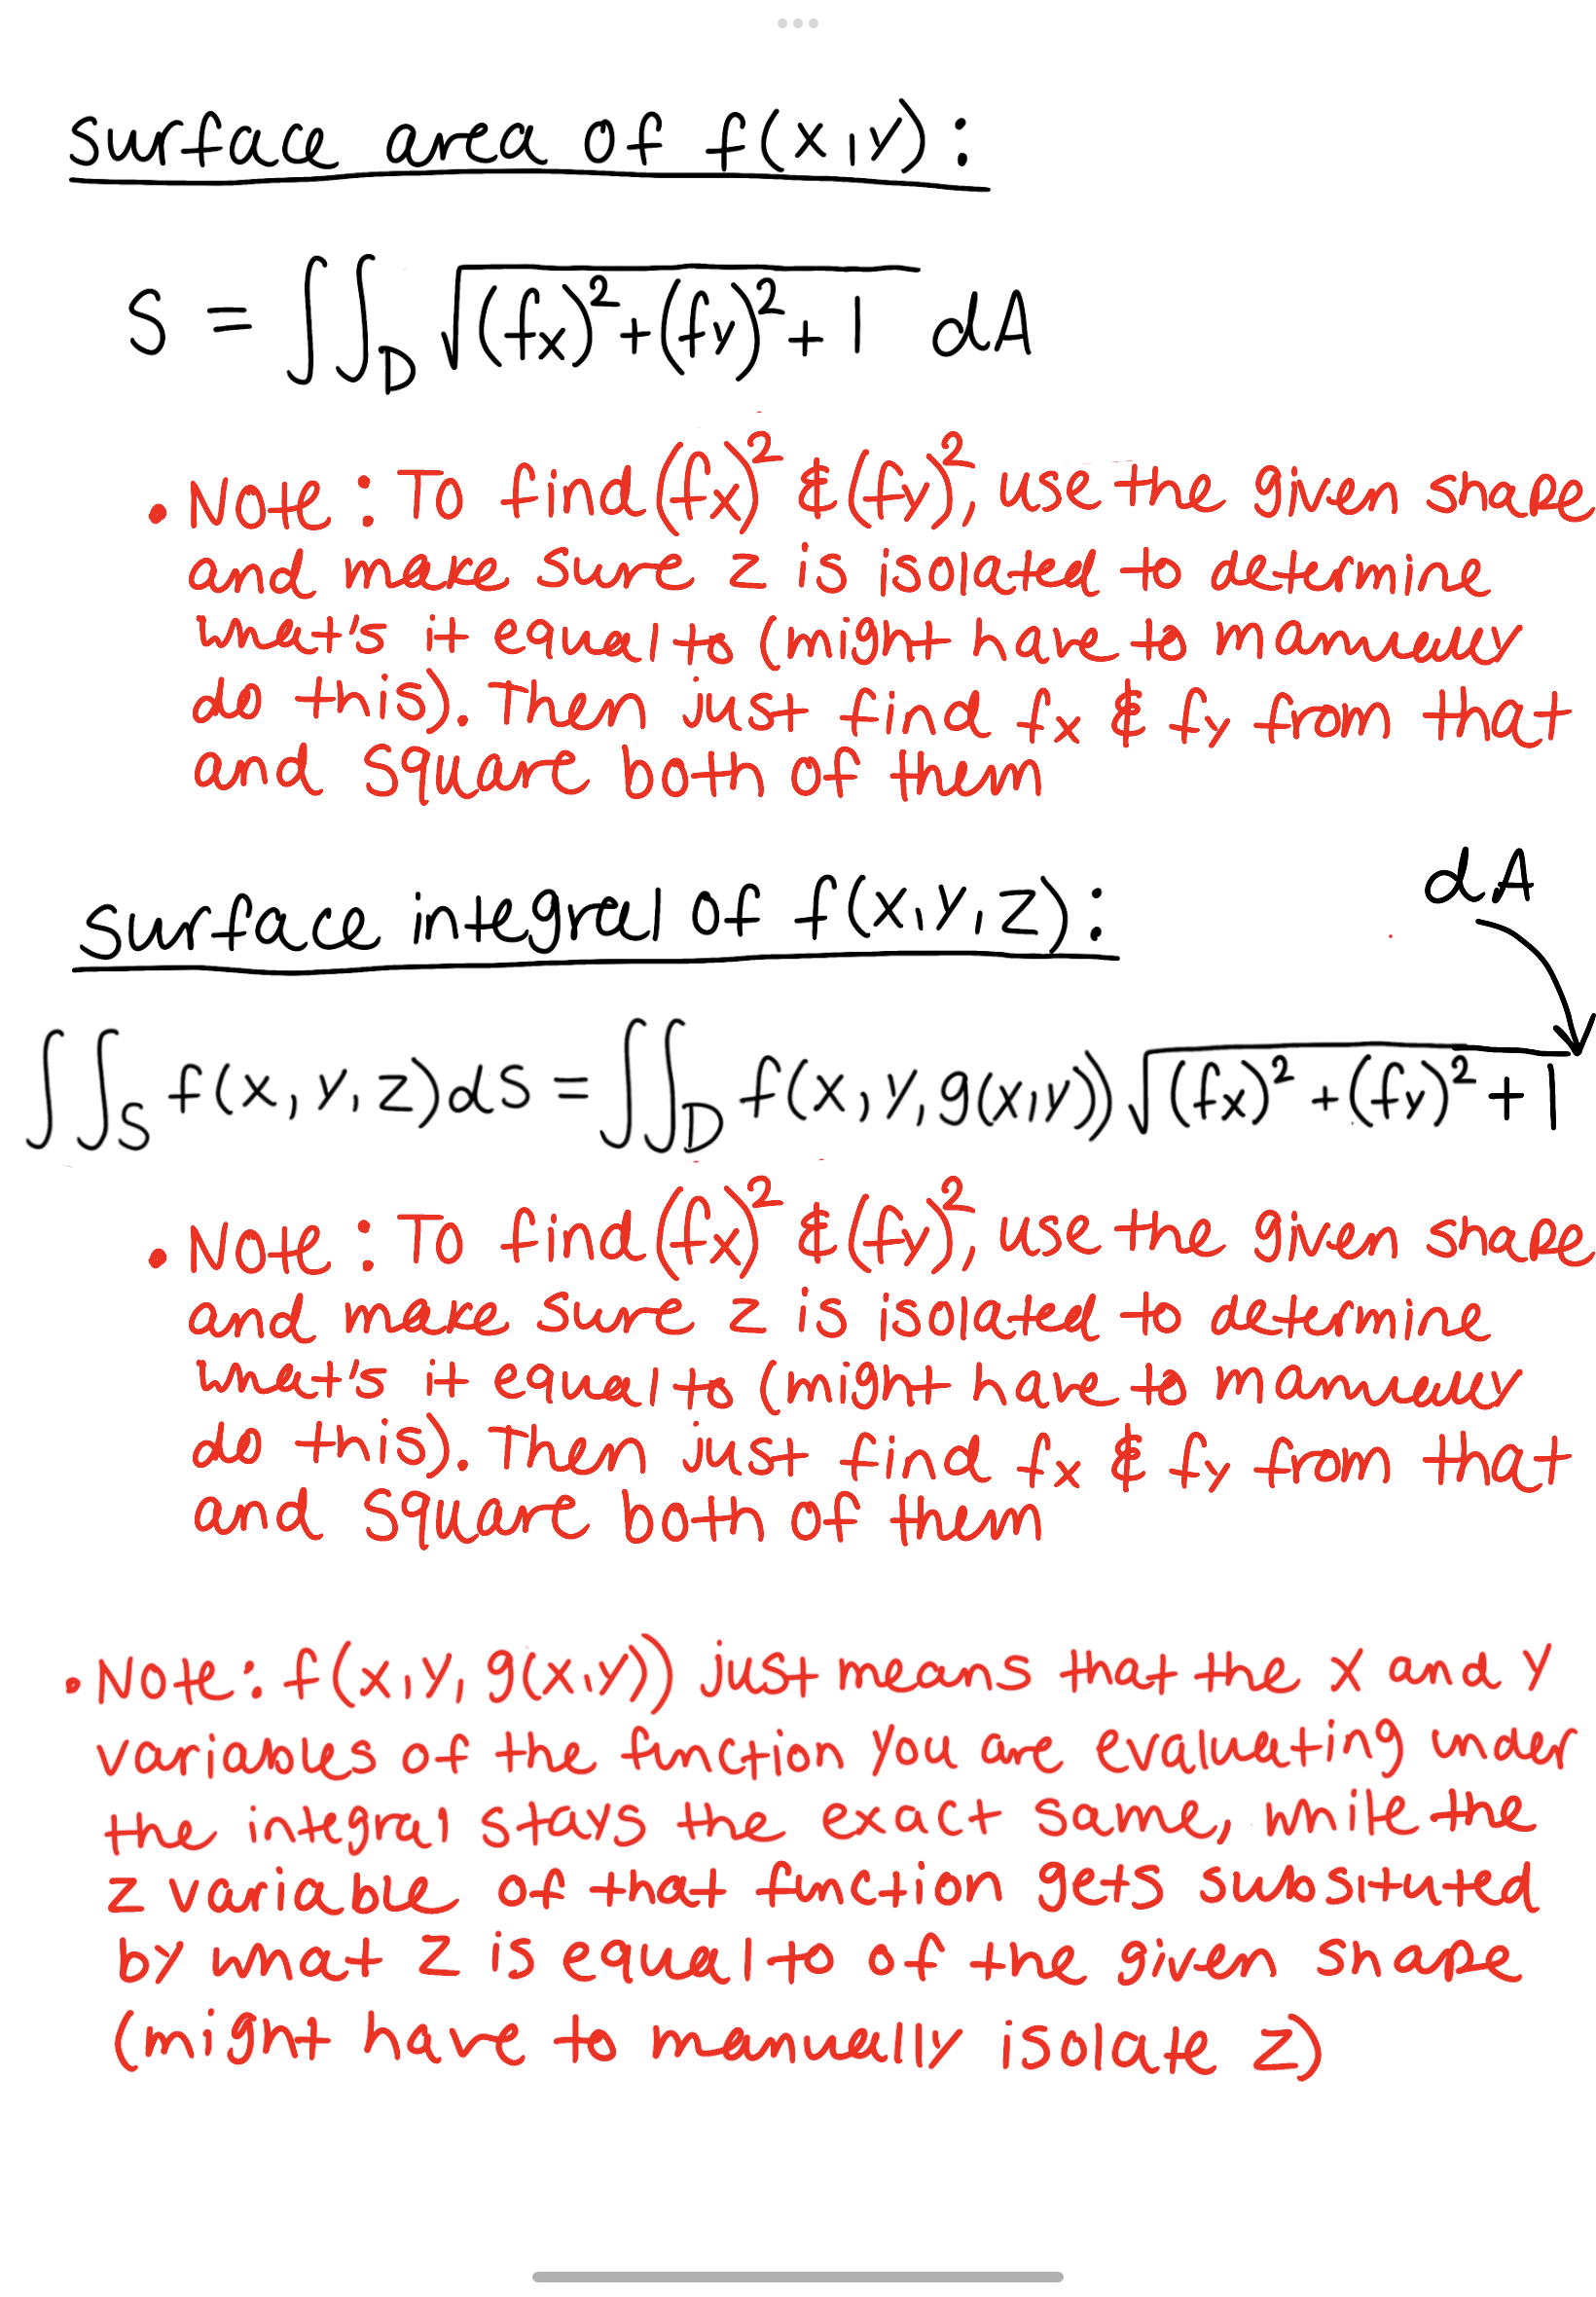 surface area of f(x,y):
S = ∬_D √((fx)²+(fy)²+1) dA
• Note: To find (fx)² & (fy)², use the given shape
and make sure z is isolated to determine
what's it equal to (might have to manually
do this). Then just find fx & fy from that
and square both of them
dA
surface integral of f(x,y,z):
∬_S f(x,y,z)dS = ∬_D f(x,y,g(x,y)) √((fx)²+(fy)²+1)
• Note: To find (fx)² & (fy)², use the given shape
and make sure z is isolated to determine
what's it equal to (might have to manually
do this). Then just find fx & fy from that
and square both of them
• Note: f(x,y,g(x,y)) just means that the x and y
variables of the function you are evaluating under
the integral stays the exact same, while the
z variable of that function gets subsituted
by what z is equal to of the given shape
(might have to manually isolate z)